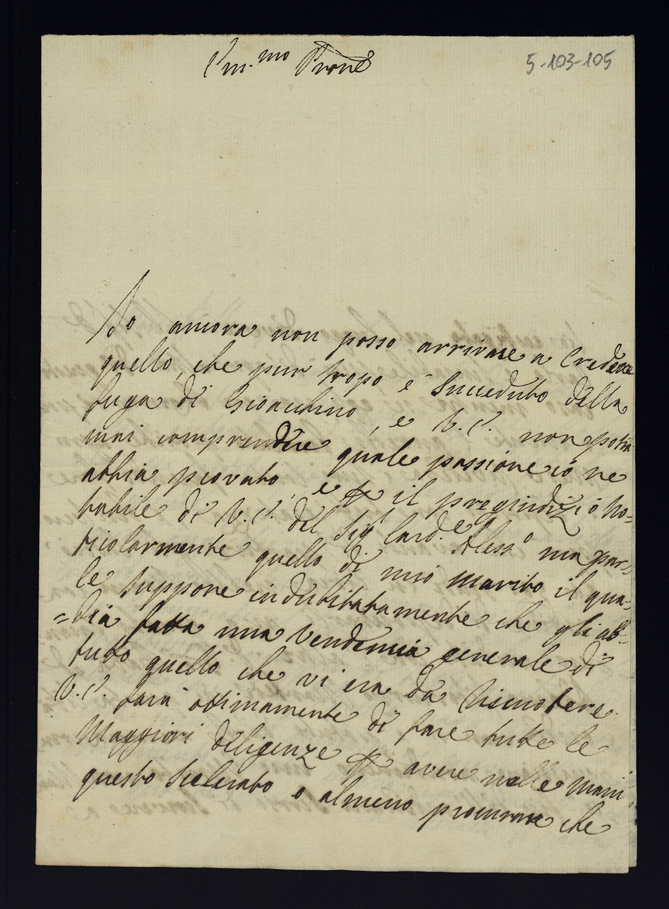 5-103-105
Em.mo Prone
Io ancora non posso arrivare a Credere
quello, che pur tropo è succeduto della
fuga di Gioacchino, e V.E. non potrà
mai comprendere quale passione io ne
abbia provato e per il pregiudizio no-
tabile di V.E. del Sig.r Card.e Aless.o ma par-
ticolarmente quello di mio marito il qua-
le suppone indubitatamente che gli ab-
=bia fatta una Vendemia generale di
tutto quello che vi era da riscuotere.
V.E. farà ottimamente di fare tutte le
Maggiori diligenze per avere nelle mani
questo Scelerato o almeno procurare che